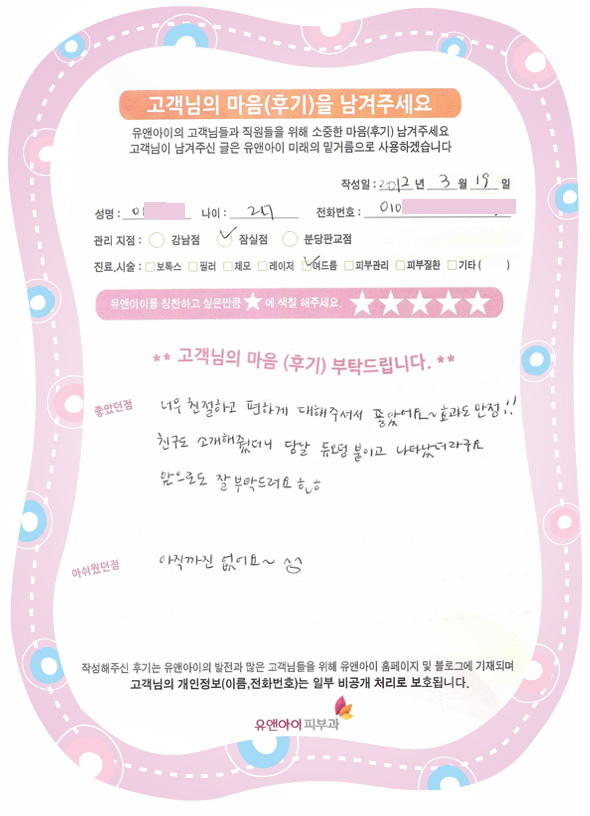 고객님의 마음(후기)을 남겨주세요
유앤아이의 고객님들과 직원들을 위해 소중한 마음(후기) 남겨주세요
고객님이 남겨주신 글은 유앤아이 미래의 밑거름으로 사용하겠습니다
작성일 : 2012 년 3 월 19 일
성명 : 나이 : 27 전화번호 : 010
관리 지점 : 강남점 잠실점 분당판교점
진료,시술 : 보톡스 필러 제모 레이저 여드름 피부관리 피부질환 기타 ( )
유앤아이를 칭찬하고 싶은만큼 ★ 에 색칠 해주세요. ★★★★★
** 고객님의 마음 (후기) 부탁드립니다. **
좋았던점 너무 친절하고 편하게 대해주셔서 좋았어요~ 효과도 만점!!
친구도 소개해줬더니 당날 듀오덤 붙이고 나타났더라구요
앞으로도 잘 부탁드려요 ㅎㅎ
아쉬웠던점 아직까진 없어요~ ^^
작성해주신 후기는 유앤아이의 발전과 많은 고객님들을 위해 유앤아이 홈페이지 및 블로그에 기재되며
고객님의 개인정보(이름,전화번호)는 일부 비공개 처리로 보호됩니다.
유앤아이 피부과